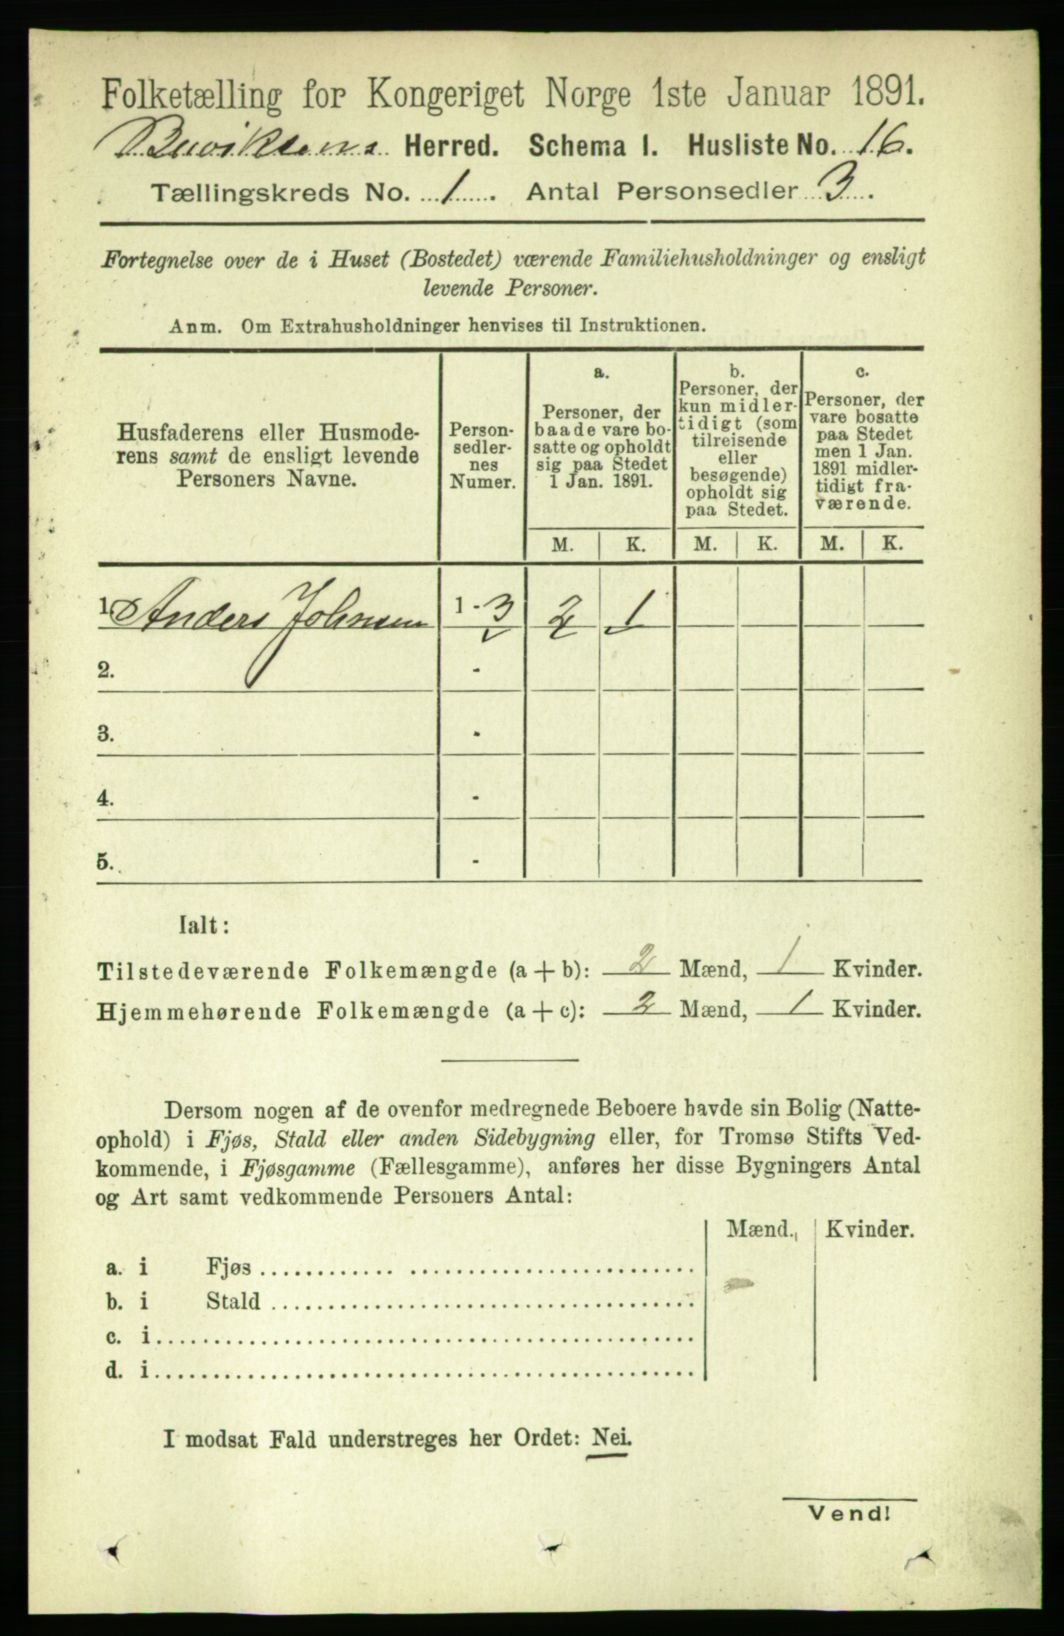 Folketælling for Kongeriget Norge 1ste Januar 1891.
Buvikens Herred. Schema I. Husliste No. 16.
Tællingskreds No. 1. Antal Personsedler 3.
Fortegnelse over de i Huset (Bostedet) værende Familiehusholdninger og ensligt
levende Personer.
Anm. Om Extrahusholdninger henvises til Instruktionen.
Husfaderens eller Husmode-
rens samt de ensligt levende
Personers Navne.
Person-
sedler-
nes
Numer.
a.
Personer, der
baade vare bo-
satte og opholdt
sig paa Stedet
1 Jan. 1891.
b.
Personer, der
kun midler-
tidigt (som
tilreisende
eller
besøgende)
opholdt sig
paa Stedet.
c.
Personer, der
vare bosatte
paa Stedet
men 1 Jan.
1891 midler-
tidigt fra-
værende.
M. K. M. K. M. K.
1. Anders Johnsen 1 - 3 2 1
2. -
3. -
4. -
5. -
Ialt:
Tilstedeværende Folkemængde (a + b): 2 Mænd, 1 Kvinder.
Hjemmehørende Folkemængde (a + c): 2 Mænd, 1 Kvinder.
Dersom nogen af de ovenfor medregnede Beboere havde sin Bolig (Natte-
ophold) i Fjøs, Stald eller anden Sidebygning eller, for Tromsø Stifts Ved-
kommende, i Fjøsgamme (Fællesgamme), anføres her disse Bygningers Antal
og Art samt vedkommende Personers Antal:
Mænd. Kvinder.
a. i Fjøs
b. i Stald
c. i
d. i
I modsat Fald understreges her Ordet: Nei.
Vend!